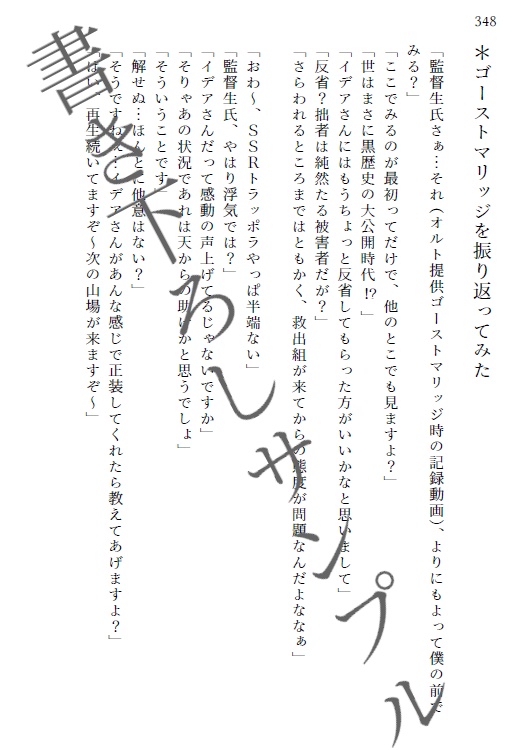 348
＊ゴーストマリッジを振り返ってみた
「監督生氏さぁ…それ(オルト提供ゴーストマリッジ時の記録動画)、よりにもよって僕の前で
みる？」
「ここでみるのが最初ってだけで、他のとこでも見ますよ？」
「世はまさに黒歴史の大公開時代⁉」
「イデアさんにはもうちょっと反省してもらった方がいいかなと思いまして」
「反省？拙者は純然たる被害者だが？」
「さらわれるところまではともかく、救出組が来てからの態度が問題なんだよななぁ」
「おわ～、ＳＳＲトラッポラやっぱ半端ない」
「監督生氏、やはり浮気では？」
「イデアさんだって感動の声上げてるじゃないですか」
「そりゃあの状況であれは天からの助けかと思うでしょ」
「そういうことです」
「解せぬ…ほんとに他意はない？」
「そうですねぇ…イデアさんがあんな感じで正装してくれたら教えてあげますよ？」
「はい、再生続いてますぞ～次の山場が来ますぞ～」
書き下ろしサンプル